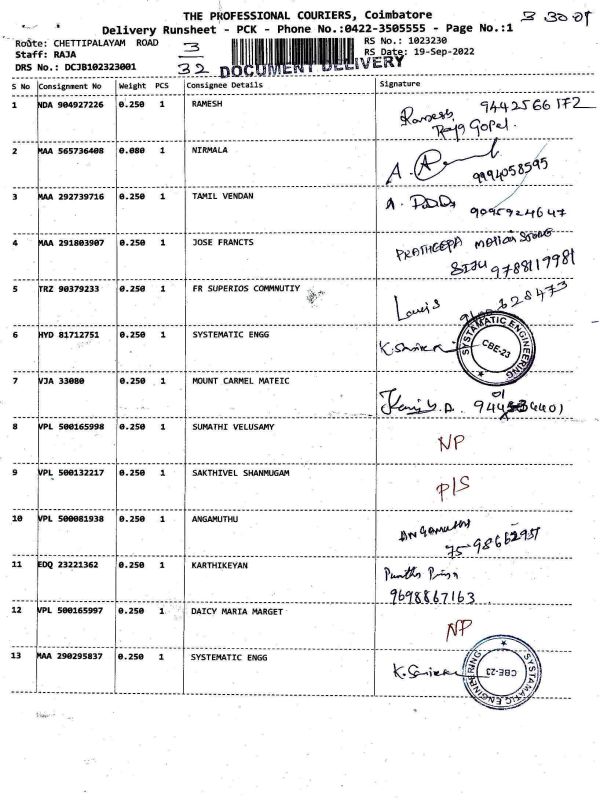 THE PROFESSIONAL COURIERS, Coimbatore
Delivery Runsheet - PCK - Phone No.:0422-3505555 - Page No.:1
Route: CHETTIPALAYAM ROAD
3
RS No.: 1023230
Staff: RAJA
RS Date: 19-Sep-2022
DRS No.: DCJB102323001
32
DOCUMENT DELIVERY
S No Consignment No Weight PCS Consignee Details Signature
1 NDA 904927226 0.250 1 RAMESH
Ramesh 9442566172
Raja Gopal.
2 MAA 565736408 0.080 1 NIRMALA
9994058595
3 MAA 292739716 0.250 1 TAMIL VENDAN
9095924647
4 MAA 291803907 0.250 1 JOSE FRANCTS
PRATHEEPA
SIJU 9788119981
5 TRZ 90379233 0.250 1 FR SUPERIOS COMMNUTIY
6 HYD 81712751 0.250 1 SYSTEMATIC ENGG
SYSTAMATIC ENGINEERING
CBE-23
7 VJA 33080 0.250 1 MOUNT CARMEL MATEIC
8 VPL 500165998 0.250 1 SUMATHI VELUSAMY
NP
9 VPL 500132217 0.250 1 SAKTHIVEL SHANMUGAM
P/S
10 VPL 500081938 0.250 1 ANGAMUTHU
Angamuthu
11 EDQ 23221362 0.250 1 KARTHIKEYAN
9698867163
12 VPL 500165997 0.250 1 DAICY MARIA MARGET
NP
13 MAA 290295837 0.250 1 SYSTEMATIC ENGG
SYSTAMATIC ENGINEERING
CBE-23